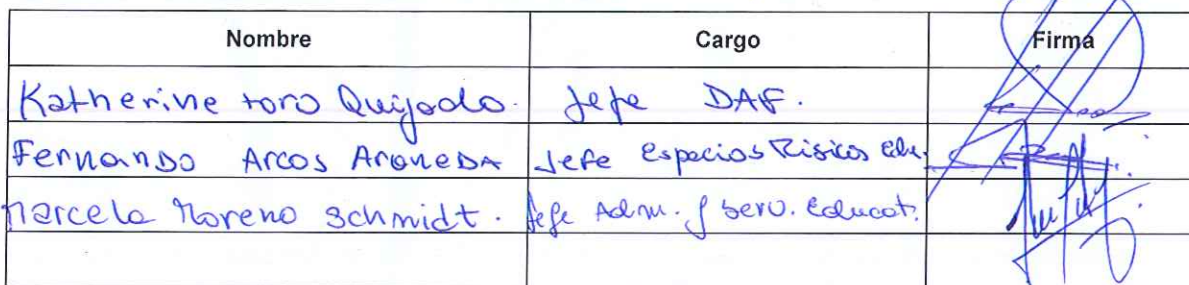 Nombre Cargo Firma
Katherine toro Quijada. Jefe DAF.
Fernando Arcos AraneDA Jefe Espacios Físicos Edu.
Marcela Moreno Schmidt. Jefe Adm. y Serv. Educat.